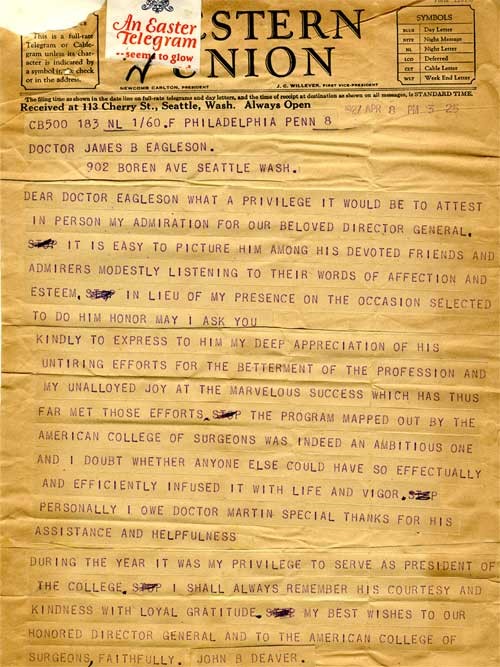 WESTERN
UNION
This is a full-rate
Telegram or Cable-
gram unless its char-
acter is indicated by
a symbol in the check
or in the address.
An Easter
Telegram
...seems to glow
NEWCOMB CARLTON, PRESIDENT
J. C. WILLEVER, FIRST VICE-PRESIDENT
SYMBOLS
BLUE Day Letter
NITE Night Message
NL Night Letter
LCO Deferred
CLT Cable Letter
WLT Week End Letter
The filing time as shown in the date line on full-rate telegrams and day letters, and the time of receipt at destination as shown on all messages, is STANDARD TIME.
Received at 1113 Cherry St., Seattle, Wash. Always Open
APR 8 PM 3 25
CB500 183 NL 1/60.F PHILADELPHIA PENN 8
DOCTOR JAMES B EAGLESON.
902 BOREN AVE SEATTLE WASH.
DEAR DOCTOR EAGLESON WHAT A PRIVILEGE IT WOULD BE TO ATTEST
IN PERSON MY ADMIRATION FOR OUR BELOVED DIRECTOR GENERAL.
STOP IT IS EASY TO PICTURE HIM AMONG HIS DEVOTED FRIENDS AND
ADMIRERS MODESTLY LISTENING TO THEIR WORDS OF AFFECTION AND
ESTEEM. STOP IN LIEU OF MY PRESENCE ON THE OCCASION SELECTED
TO DO HIM HONOR MAY I ASK YOU
KINDLY TO EXPRESS TO HIM MY DEEP APPRECIATION OF HIS
UNTIRING EFFORTS FOR THE BETTERMENT OF THE PROFESSION AND
MY UNALLOYED JOY AT THE MARVELOUS SUCCESS WHICH HAS THUS
FAR MET THOSE EFFORTS. STOP THE PROGRAM MAPPED OUT BY THE
AMERICAN COLLEGE OF SURGEONS WAS INDEED AN AMBITIOUS ONE
AND I DOUBT WHETHER ANYONE ELSE COULD HAVE SO EFFECTUALLY
AND EFFICIENTLY INFUSED IT WITH LIFE AND VIGOR. STOP
PERSONALLY I OWE DOCTOR MARTIN SPECIAL THANKS FOR HIS
ASSISTANCE AND HELPFULNESS
DURING THE YEAR IT WAS MY PRIVILEGE TO SERVE AS PRESIDENT OF
THE COLLEGE. STOP I SHALL ALWAYS REMEMBER HIS COURTESY AND
KINDNESS WITH LOYAL GRATITUDE. STOP MY BEST WISHES TO OUR
HONORED DIRECTOR GENERAL AND TO THE AMERICAN COLLEGE OF
SURGEONS, FAITHFULLY. JOHN B DEAVER.